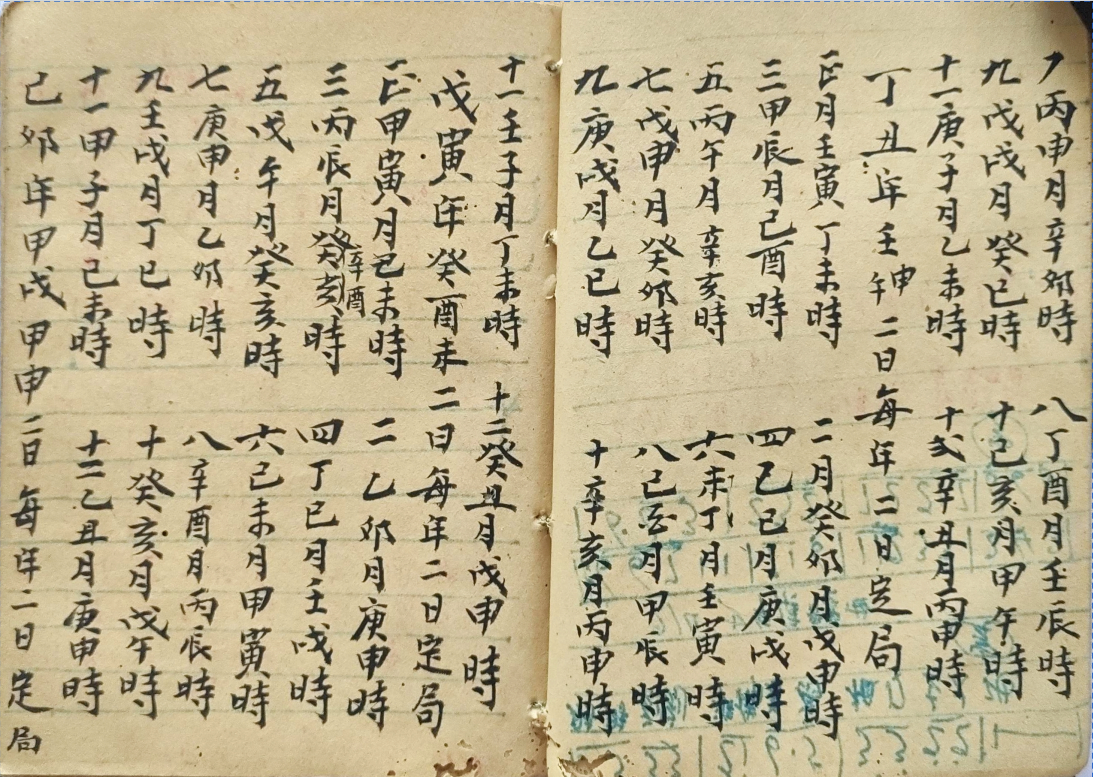 丙申月辛卯時 八丁酉月壬辰時
九戊戌月癸巳時 十己亥月甲午時
十一庚子月乙未時 十弍辛丑月丙申時
丁丑年壬午申二日每年二日定局
正月壬寅丁未時 二月癸卯月戊申時
三甲辰月己酉時 四己巳月庚戌時
五丙午月辛亥時 六未丁月壬寅時
七戊申月癸卯時 八己酉月甲辰時
九庚戌月乙巳時 十辛亥月丙申時
十一壬子月丁未時 十二癸丑月戊申時
戊寅年癸酉未二日每年二日定局
正甲寅月己未時 二乙卯月庚申時
三丙辰月癸亥辛酉時 四丁巳月壬戌時
五戊午月癸亥時 六己未月甲寅時
七庚申月乙卯時 八辛酉月丙辰時
九壬戌月丁巳時 十癸亥月戊午時
十一甲子月己未時 十二乙丑月庚申時
己卯年甲戌甲申二日每年二日定局